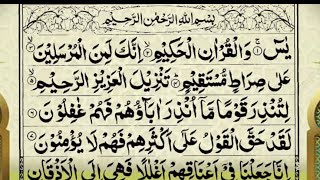 بِسْمِ اللهِ الرَّحْمٰنِ الرَّحِيْمِ
يٰسٓ ۚ وَالْقُرْاٰنِ الْحَكِيْمِ ۙ اِنَّكَ لَمِنَ الْمُرْسَلِيْنَ ۙ
عَلٰى صِرَاطٍ مُّسْتَقِيْمٍ ؕ تَنْزِيْلَ الْعَزِيْزِ الرَّحِيْمِ ۙ
لِتُنْذِرَ قَوْمًا مَّاۤ اُنْذِرَ اٰبَآؤُهُمْ فَهُمْ غٰفِلُوْنَ
لَقَدْ حَقَّ الْقَوْلُ عَلٰۤى اَكْثَرِهِمْ فَهُمْ لَا يُؤْمِنُوْنَ
اِنَّا جَعَلْنَا فِيْۤ اَعْنَاقِهِمْ اَغْلٰلًا فَهِيَ اِلَى الْاَذْقَانِ